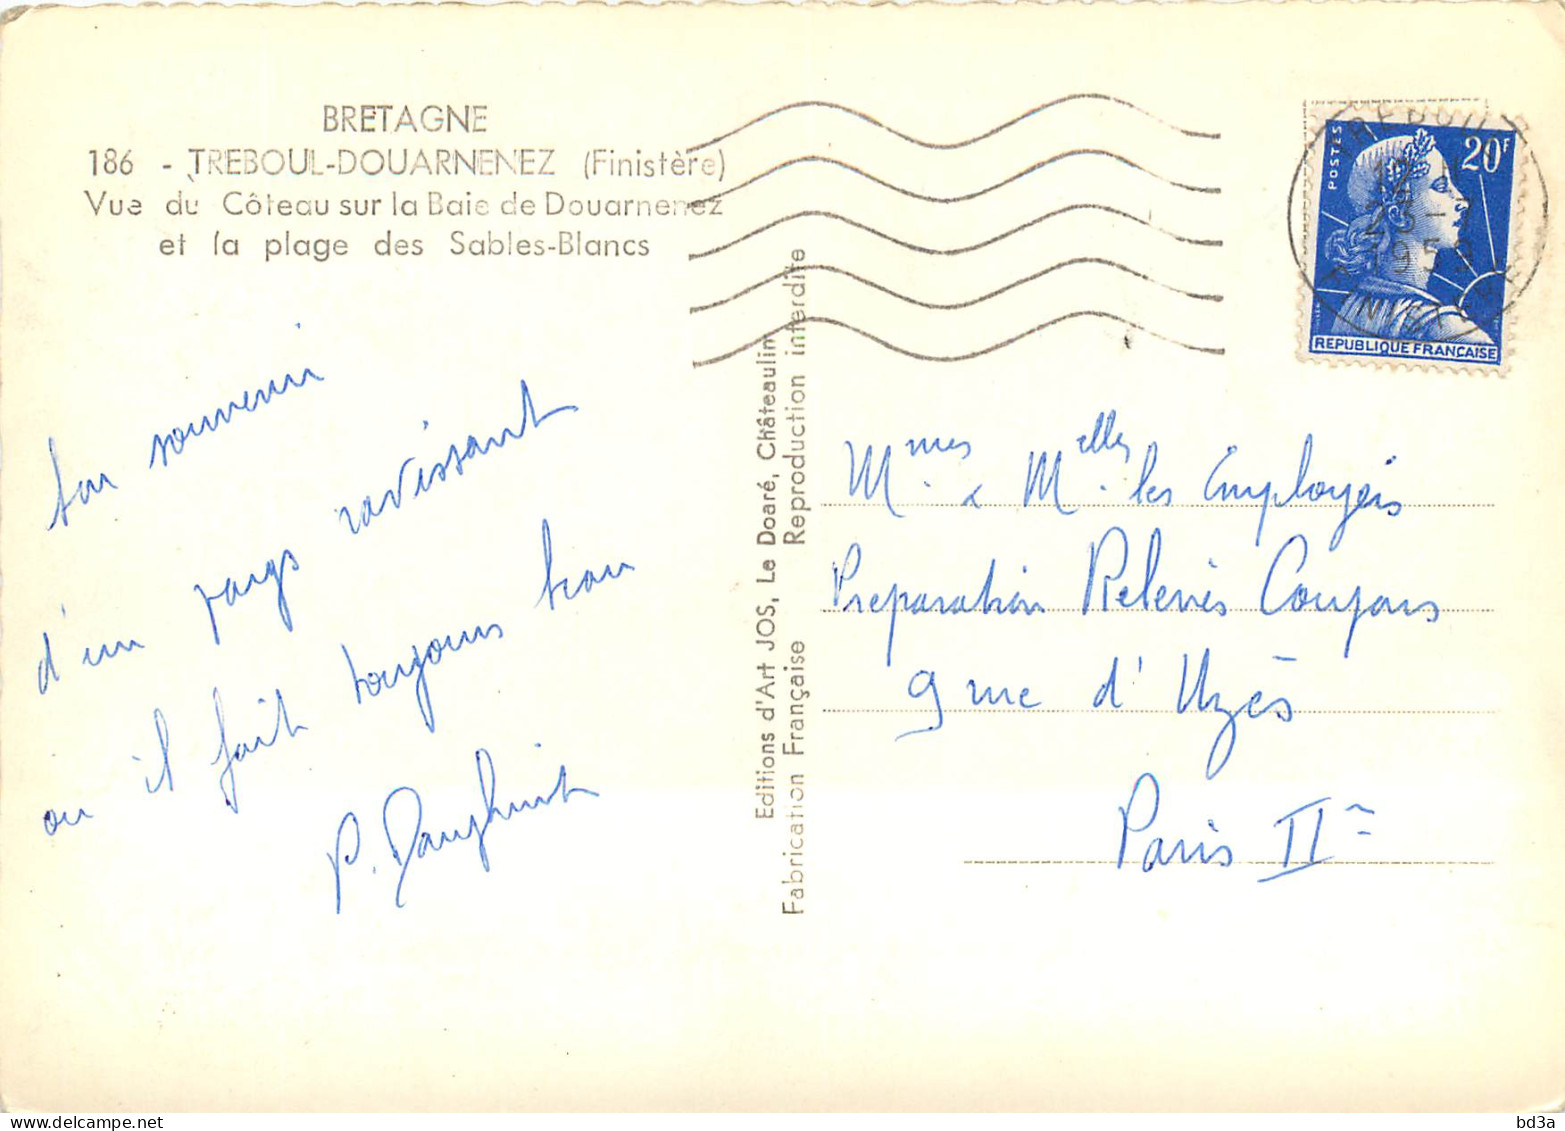 BRETAGNE
186 - TREBOUL-DOUARNENEZ (Finistère)
Vue du Côteau sur la Baie de Douarnenez
et la plage des Sables-Blancs
souvenir
d'un pays ravissant
ou il fait toujours beau
P.
Editions d'Art JOS, Le Doaré, Châteaulin
Fabrication Française Reproduction interdite
POSTES
20F
REPUBLIQUE FRANÇAISE
TREBOUL
1959
FINISTERE
Mmes & Melles les Employés
Preparation Relevés Coupons
9 rue d'Uzès
Paris II
bd3a